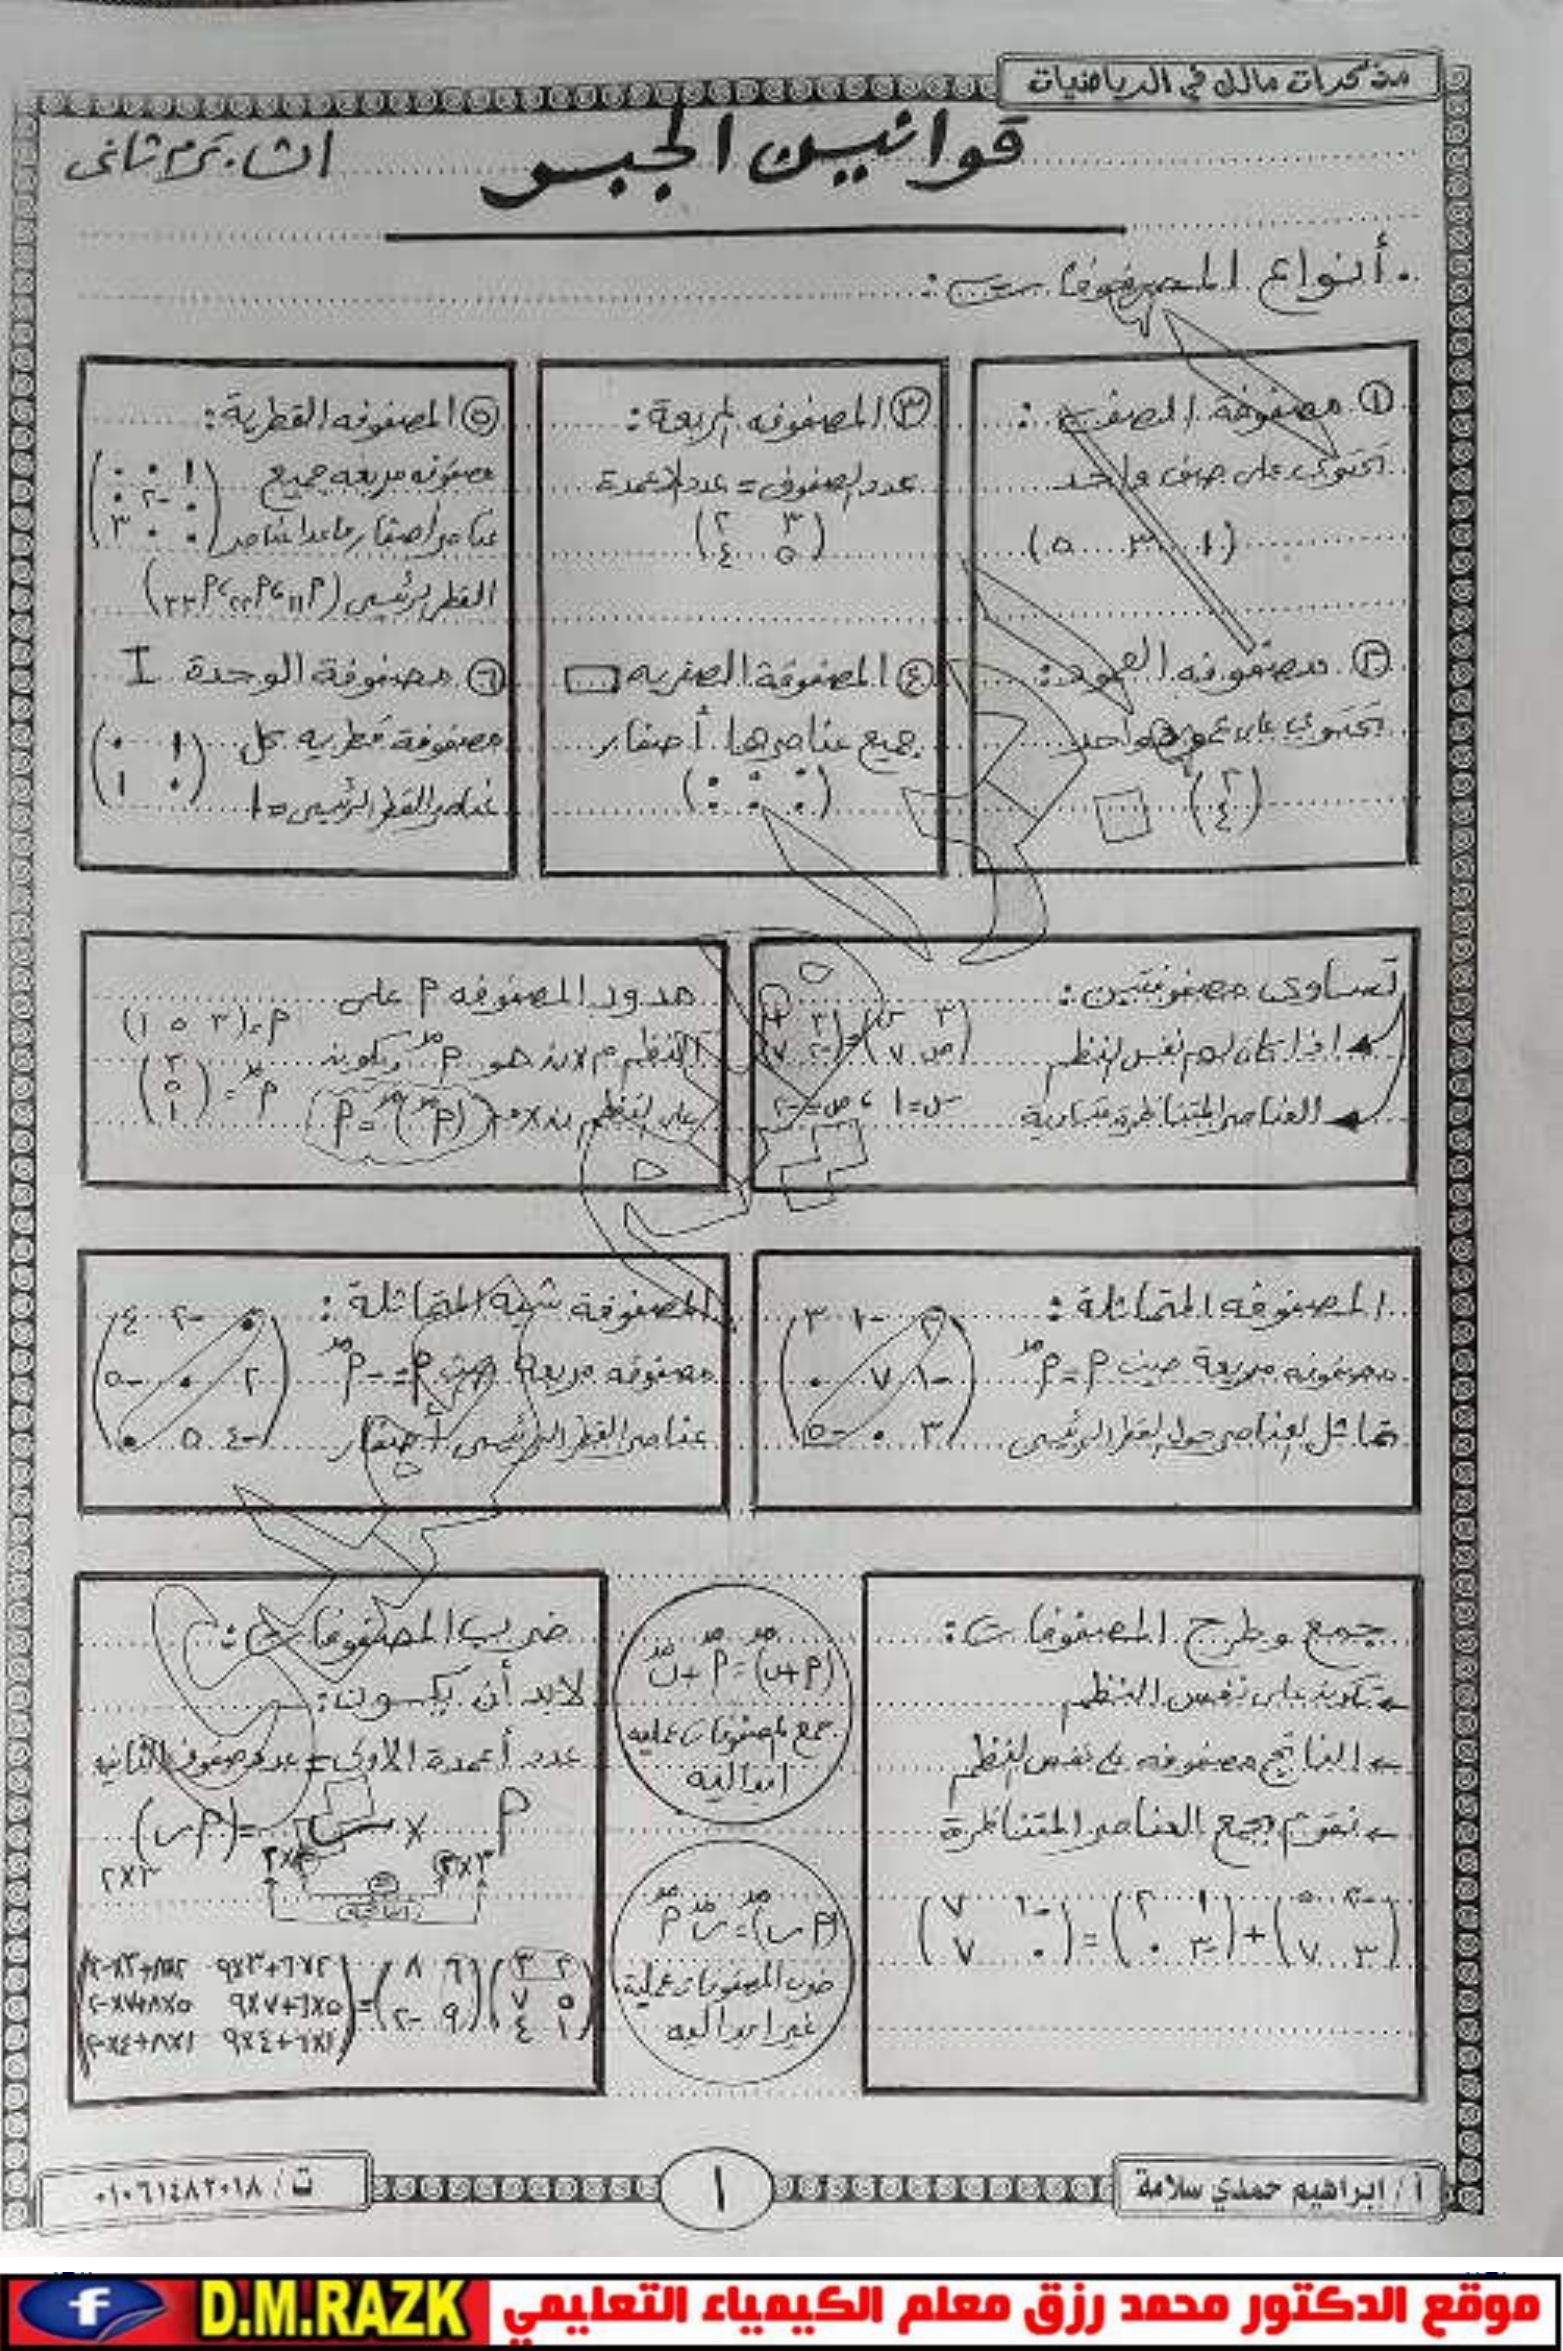 مذكرات مالك في الرياضيات
قوانين الجبر
أنواع المصفوفات:
① مصفوفة الصف:
تحتوي على صف واحد
(١ ٣ ٥)
② مصفوفه العمود:
تحتوي على عمود واحد
(٢
٤)
③ المصفوفه المربعة:
عدد الصفوف = عدد الأعمدة
(٣ ٢
٥ ٤)
④ المصفوفة الصفريه
جميع عناصرها أصفار
(٠ ٠ ٠)
⑤ المصفوفه القطرية:
مصفوفه مربعه جميع
عناصر أصفار ماعدا عناصر
القطر الرئيسى (م١١، م٢٢، م٣٣)
(١ ٠ ٠
٠ -٢ ٠
٠ ٠ ٣)
⑥ مصفوفة الوحدة I
مصفوفة قطريه كل
عناصر القطر الرئيسى = ١
(١ ٠
٠ ١)
تساوى مصفوفتين:
اذا كان لهم نفس النظم
العناصر المتناظرة متساوية
س = ١ ، ص = -٢
مدور المصفوفه م على
النظم م×ن هو م مد ويكون
على النظم ن×م (م مد) مد = م
م = (٣ ٥ ١)
م مد = (٣
٥
١)
المصفوفه المتماثلة:
مصفوفه مربعة حيث م = م مد
تماثل العناصر حول القطر الرئيسى
(٢ -١ ٣
-١ ٧ ٠
٣ ٠ -٥)
المصفوفة شبه المتماثلة:
مصفوفه مربعة حيث م = -م مد
عناصر القطر الرئيسى أصفار
(٠ -٢ ٤
٢ ٠ -٥
-٤ ٥ ٠)
جمع وطرح المصفوفات:
← تكون على نفس النظم
← الناتج مصفوفه على نفس النظم
← نقوم بجمع العناصر المتناظرة
(-٢ ٥
٣ ٧) + (١ ٢
-٣ ٠) = (-١ ٧
٠ ٧)
(م + ب) مد = م مد + ب مد
جمع المصفوفات عمليه
ابداليه
(م ب) مد = ب مد م مد
ضرب المصفوفات عملية
غير ابداليه
ضرب المصفوفات:
لابد أن يكون:
عدد أعمدة الأولى = عدد صفوف الثانيه
م × ب = (م ب)
(٢ ٣
٥ ٧
١ ٤) (٦ ٨
٩ -٢) = (٢×٦+٣×٩ ٢×٨+٣×-٢
٥×٦+٧×٩ ٥×٨+٧×-٢
١×٦+٤×٩ ١×٨+٤×-٢)
أ / إبراهيم حمدي سلامة
١
ت / ٠١٠٦١٤٨٢٠١٨
موقع الدكتور محمد رزق معلم الكيمياء التعليمي
D.M.RAZK
f